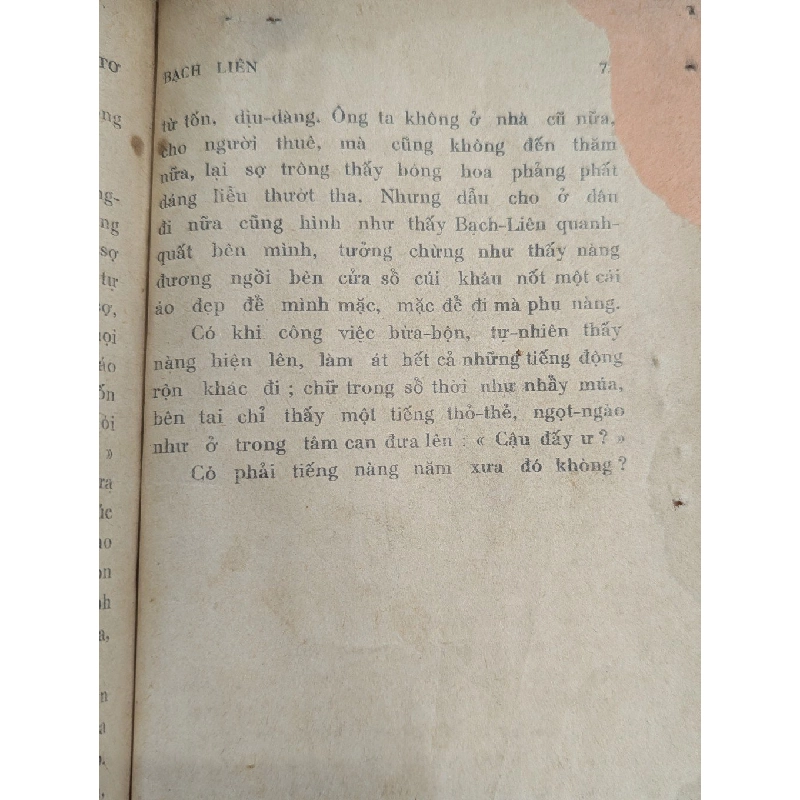 BẠCH LIÊN
từ tốn, dịu-dàng. Ông ta không ở nhà cũ nữa,
cho người thuê, mà cũng không đến thăm
nữa, lại sợ trông thấy bóng hoa phảng phất
dáng liễu thướt tha. Nhưng dẫu cho ở đâu
đi nữa cũng hình như thấy Bạch-Liên quanh-
quất bên mình, tưởng chừng như thấy nàng
đương ngồi bên cửa sổ cúi khâu nốt một cái
áo đẹp để mình mặc, mặc để đi mà phụ nàng.
Có khi công việc bừa-bộn, tự-nhiên thấy
nàng hiện lên, làm át hết cả những tiếng động
rộn khác đi ; chữ trong sổ thời như nhẩy múa,
bên tai chỉ thấy một tiếng thỏ-thẻ, ngọt-ngào
như ở trong tâm can đưa lên : « Cậu đấy ư ? »
Có phải tiếng nàng năm xưa đó không ?